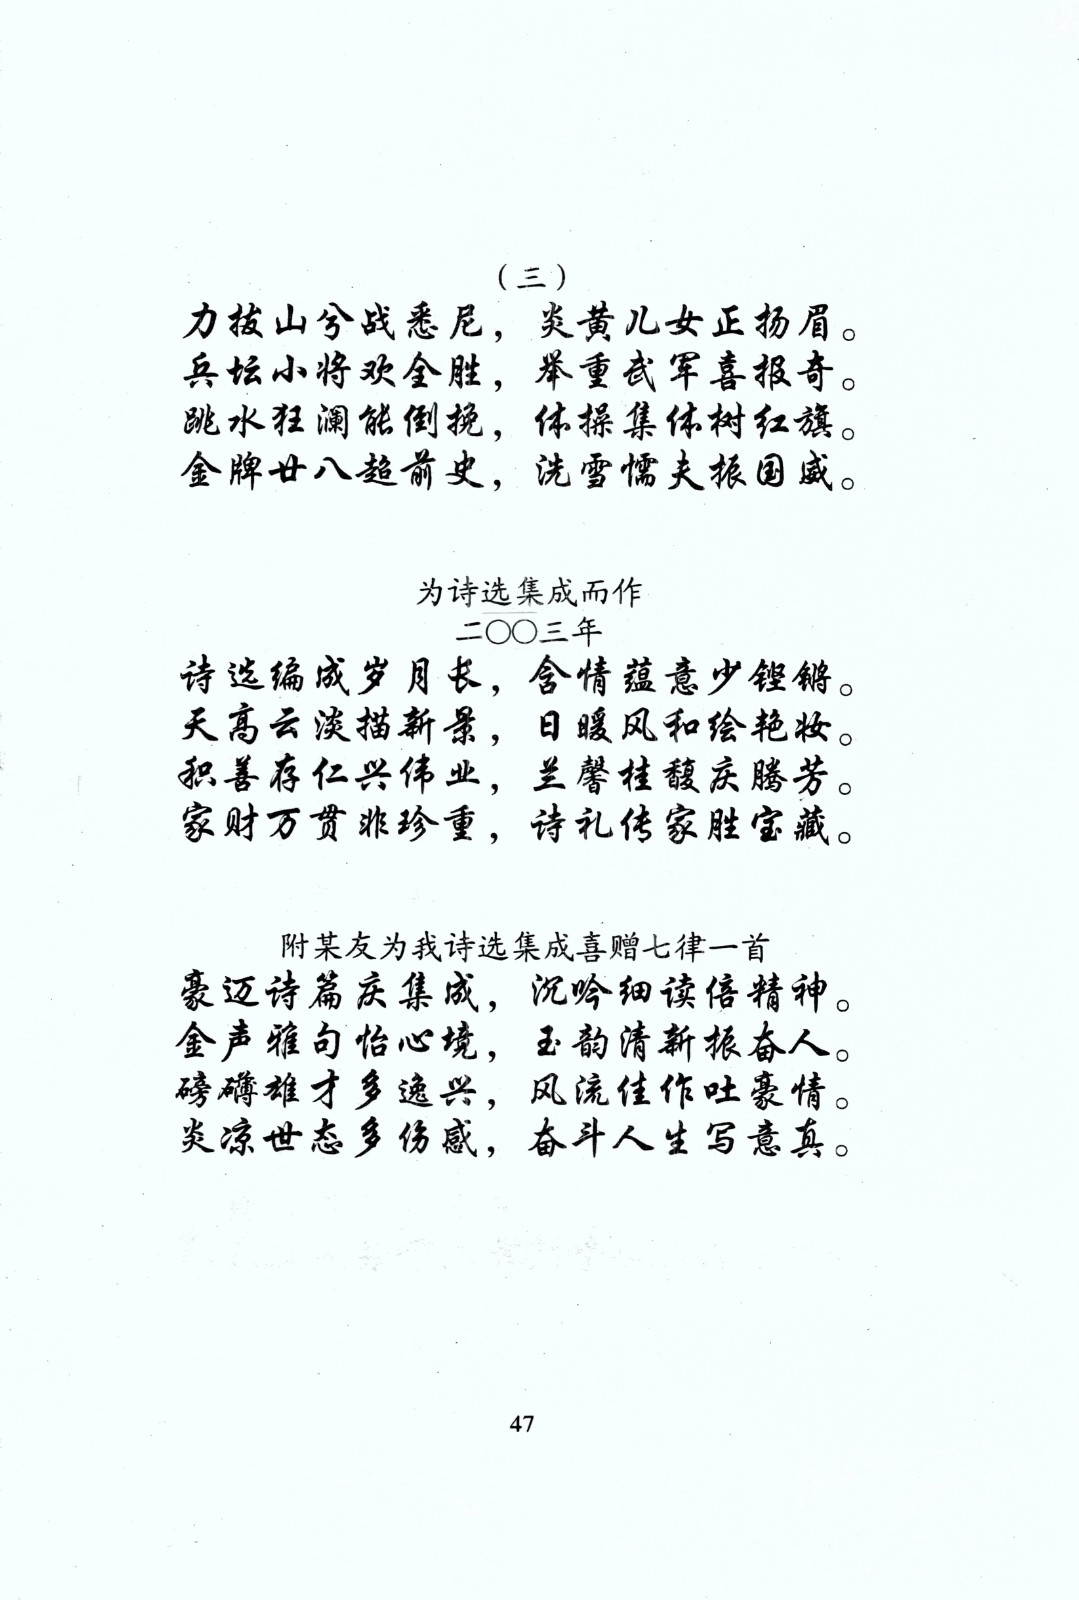 （三）
力拔山兮战悉尼，炎黄儿女正扬眉。
兵坛小将欢全胜，举重武军喜报奇。
跳水狂澜能倒挽，体操集体树红旗。
金牌廿八超前史，洗雪懦夫振国威。
为诗选集成而作
二〇〇三年
诗选编成岁月长，含情蕴意少铿锵。
天高云淡描新景，日暖风和绘艳妆。
积善存仁兴伟业，兰馨桂馥庆腾芳。
家财万贯非珍重，诗礼传家胜宝藏。
附某友为我诗选集成喜赠七律一首
豪迈诗篇庆集成，沉吟细读倍精神。
金声雅句怡心境，玉韵清新振奋人。
磅礴雄才多逸兴，风流佳作吐豪情。
炎凉世态多伤感，奋斗人生写意真。
47